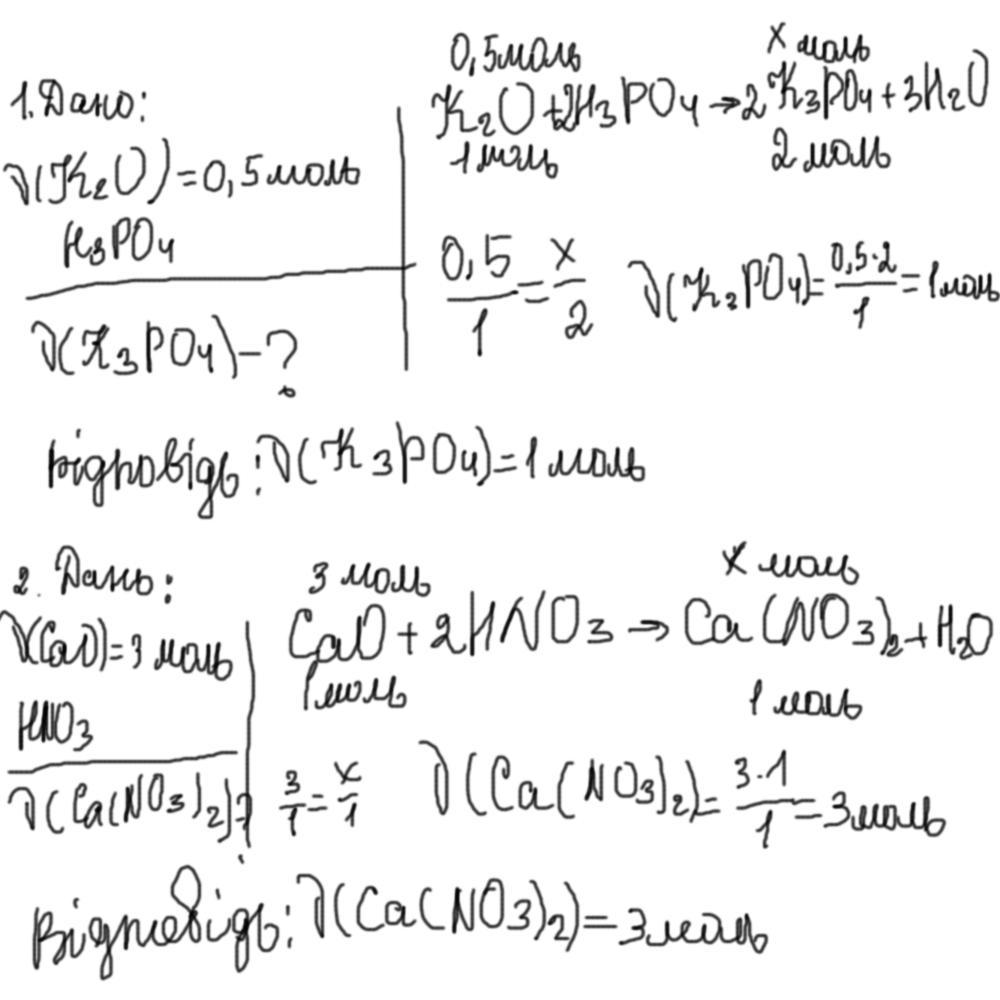 1. Дано:
ν(K₂O) = 0,5 моль
H₃PO₄
ν(K₃PO₄) – ?
0,5 моль x моль
K₂O + 2H₃PO₄ → 2K₃PO₄ + 3H₂O
1 моль 2 моль
0,5/1 = x/2 ν(K₃PO₄) = 0,5·2/1 = 1 моль
Відповідь: ν(K₃PO₄) = 1 моль
2. Дань:
ν(CaO) = 3 моль
HNO₃
ν(Ca(NO₃)₂) – ?
3 моль x моль
CaO + 2HNO₃ → Ca(NO₃)₂ + H₂O
1 моль 1 моль
3/1 = x/1 ν(Ca(NO₃)₂) = 3·1/1 = 3 моль
Відповідь: ν(Ca(NO₃)₂) = 3 моль